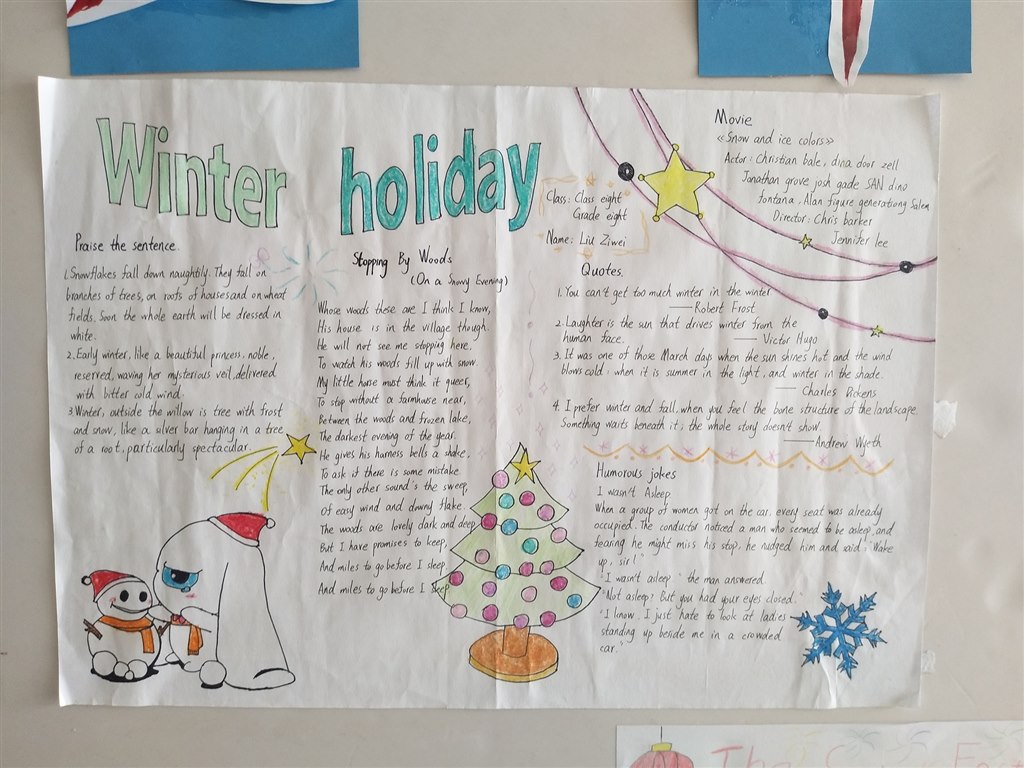 Winter holiday
Praise the sentence.
1. Snowflakes fall down naughtily. They fall on
branches of trees, on roofs of houses and on wheat
fields. Soon the whole earth will be dressed in
white.
2. Early winter, like a beautiful princess, noble,
reserved, waving her mysterious veil, delivered
with bitter cold wind.
3. Winter, outside the willow is tree with frost
and snow, like a silver bar hanging in a tree
of a root, particularly spectacular.
Stopping By Woods
(On a Snowy Evening)
Whose woods these are I think I know,
His house is in the village though.
He will not see me stopping here,
To watch his woods fill up with snow.
My little horse must think it queer,
To stop without a farmhouse near,
Between the woods and frozen lake,
The darkest evening of the year.
He gives his harness bells a shake,
To ask if there is some mistake
The only other sound's the sweep,
Of easy wind and downy flake.
The woods are lovely dark and deep
But I have promises to keep,
And miles to go before I sleep.
And miles to go before I sleep.
Class: Class eight
Grade eight
Name: Liu Ziwei
Movie
《Snow and ice colors》
Actor: Christian bale, dina door zell
Jonathan grove josh gade SAN dino
fontana, Alan figure generationg Salem
Director: Chris barker
Jennifer lee
Quotes.
1. You can't get too much winter in the winter
——Robert Frost
2. Laughter is the sun that drives winter from the
human face. ——Victor Hugo
3. It was one of those March days when the sun shines hot and the wind
blows cold: when it is summer in the light, and winter in the shade.
——Charles Dickens
4. I prefer winter and fall, when you feel the bone structure of the landscape.
Something waits beneath it, the whole story doesn't show.
——Andrew Wyeth
Humorous jokes
I wasn't Asleep
When a group of women got on the car, every seat was already
occupied. The conductor noticed a man who seemed to be asleep, and
fearing he might miss his stop, he nudged him and said: "Wake
up, sir!"
"I wasn't asleep." the man answered.
"Not asleep? But you had your eyes closed."
"I know. I just hate to look at ladies
standing up beside me in a crowded
car."